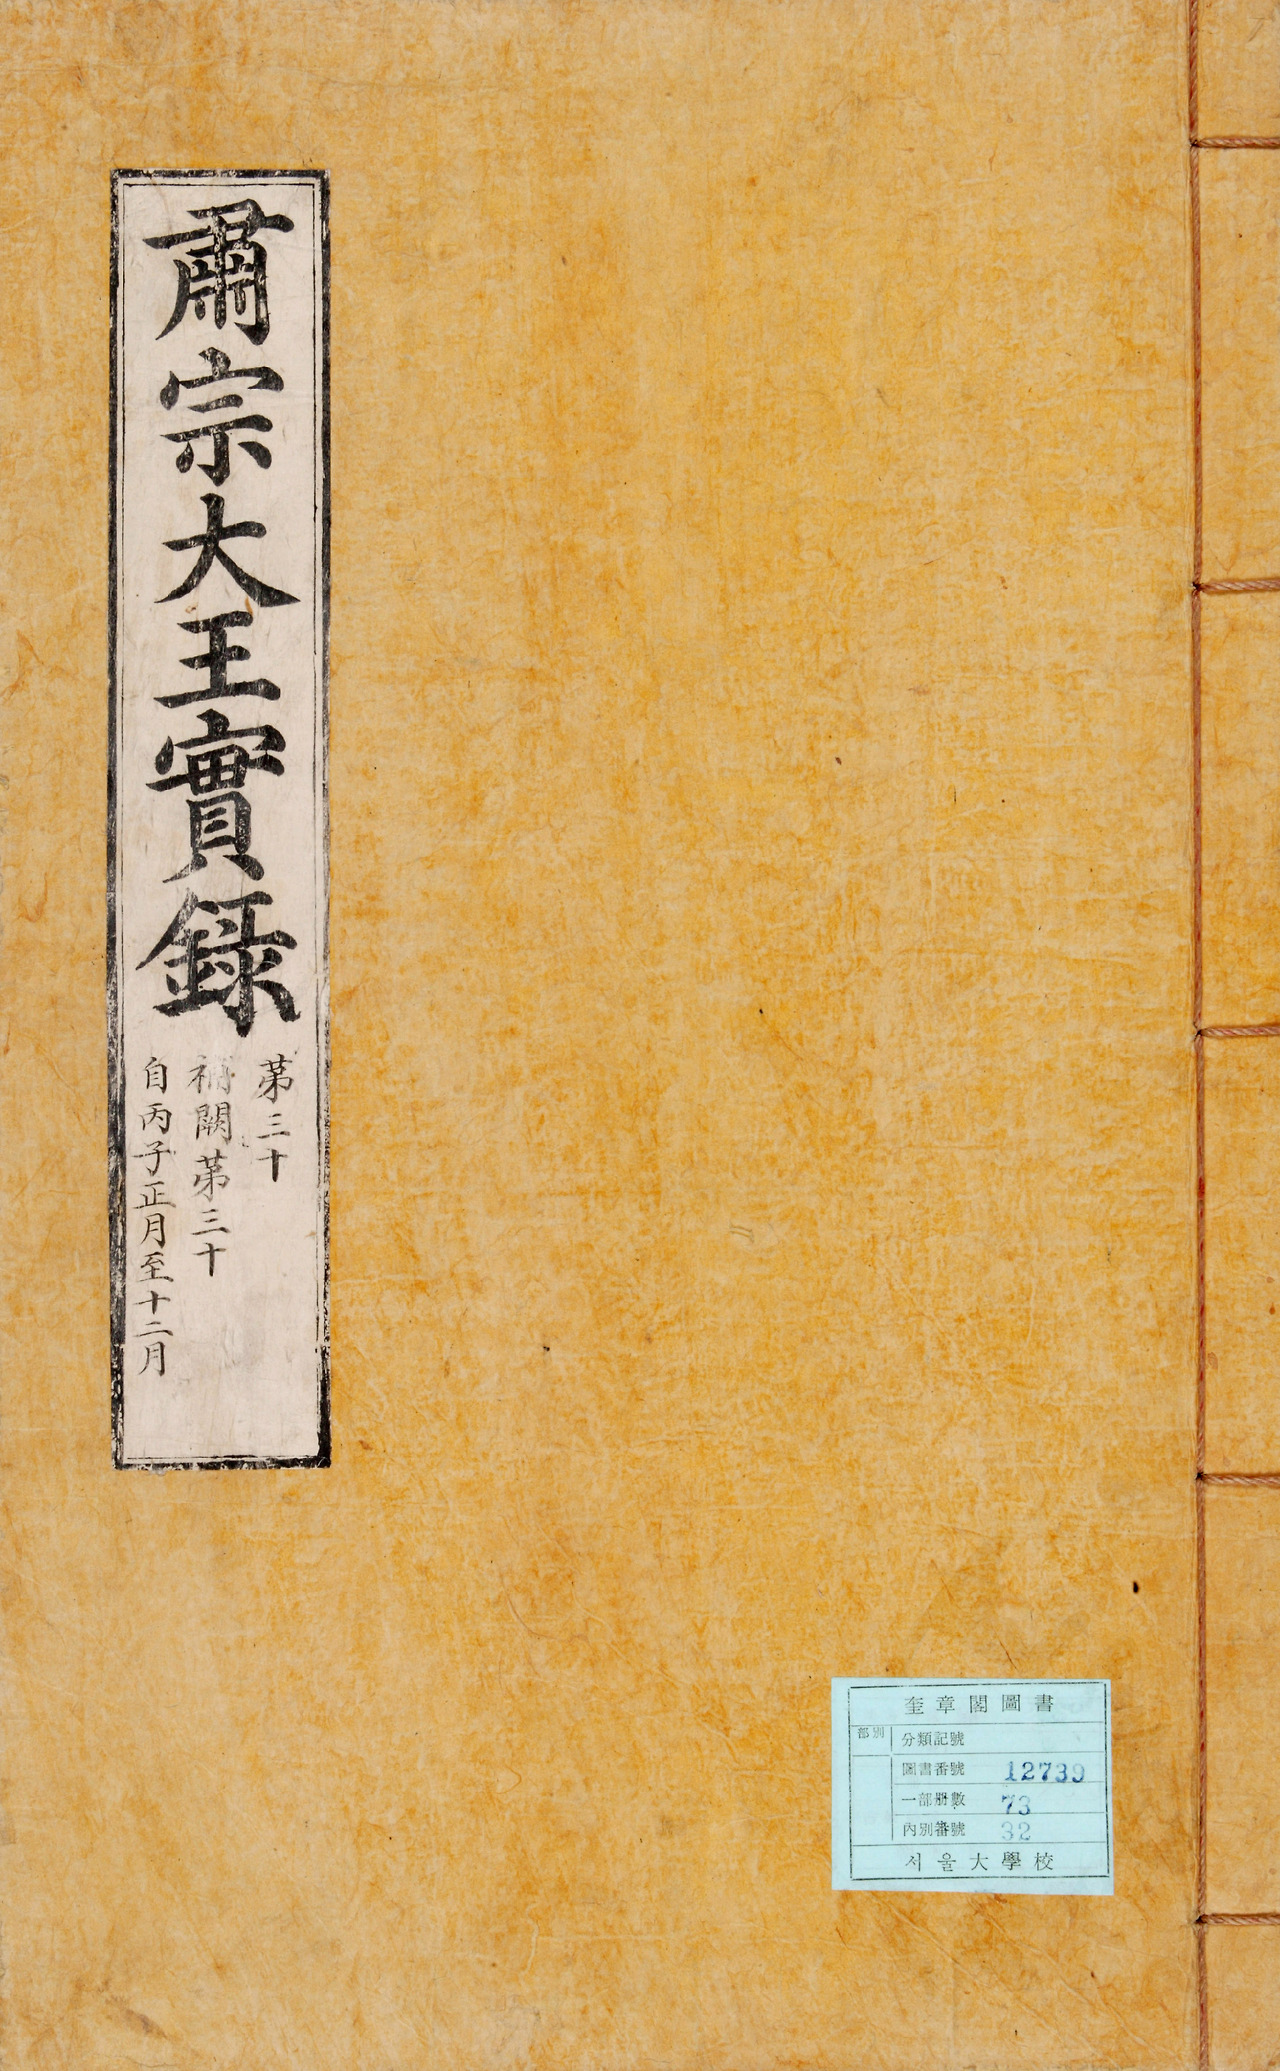 肅宗大王實錄
第三十
補闕第三十
自丙子正月至十二月
奎章閣圖書
部別
分類記號
圖書番號 12739
一部冊數 73
內別番號 32
서울大學校